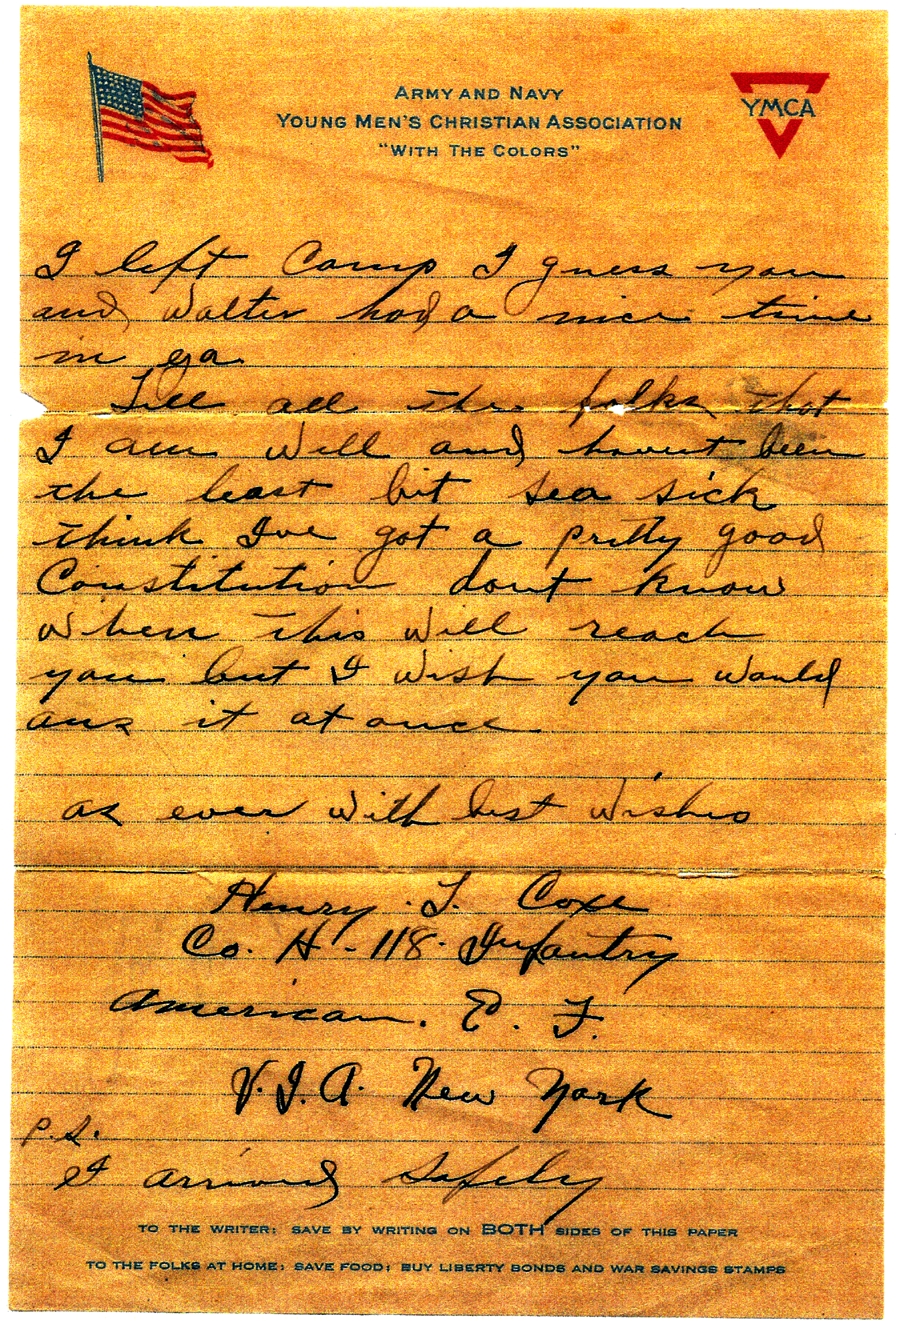 ARMY AND NAVY
YOUNG MEN'S CHRISTIAN ASSOCIATION
"WITH THE COLORS"
YMCA
I left Camp I guess you
and Walter had a nice time
in ga.
Tell all the folks that
I am well and havent been
the least bit sea sick
think Ive got a pretty good
Constitution dont know
when this will reach
you but I wish you would
ans it at once
as ever with best wishes
Henry T. Coxe
Co. H - 118. Infantry
American. E. F.
V.I.A. New York
P.S.
I arrived safely
TO THE WRITER: SAVE BY WRITING ON BOTH SIDES OF THIS PAPER
TO THE FOLKS AT HOME: SAVE FOOD; BUY LIBERTY BONDS AND WAR SAVINGS STAMPS